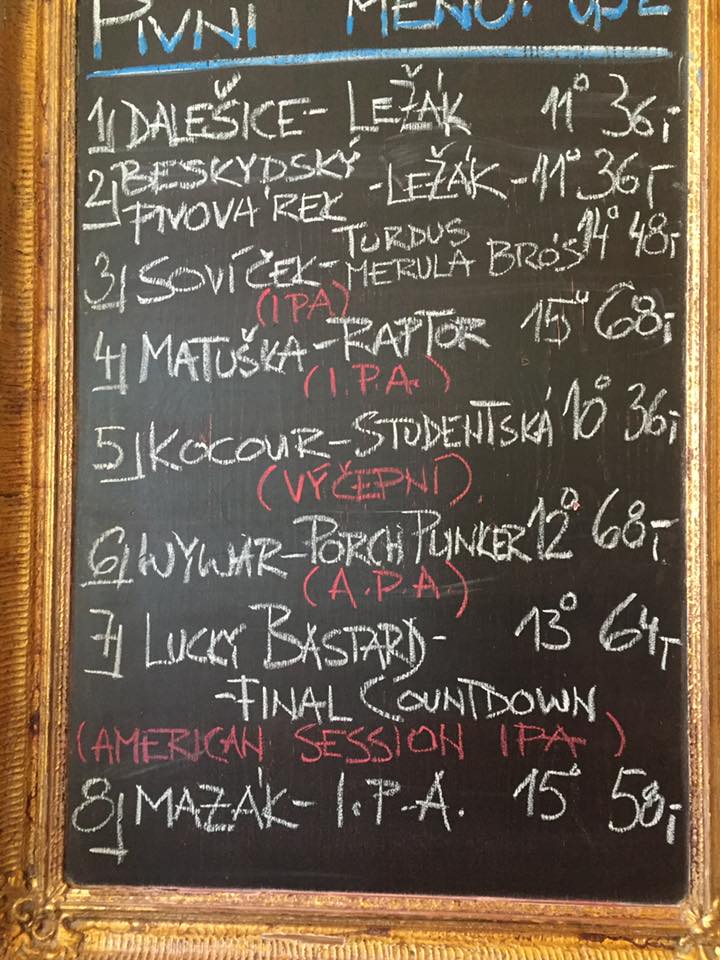 PIVNÍ MENU:
1) DALEŠICE - LEŽÁK 11° 36,-
2) BESKYDSKÝ PIVOVÁREK - LEŽÁK - 11° 36,-
3) SOVÍČEK - TURDUS MERULA BROS 14° 48,-
(IPA)
4) MATUŠKA - RAPTOR 15° 68,-
(I.P.A.)
5) KOCOUR - STUDENTSKÁ 10° 36,-
(VÝČEPNÍ)
6) WYWAR - PORCH PLINKER 12° 68,-
(A.P.A.)
7) LUCKY BASTARD - 13° 64,-
- FINAL COUNTDOWN
(AMERICAN SESSION IPA)
8) MAZÁK - I.P.A. 15° 58,-